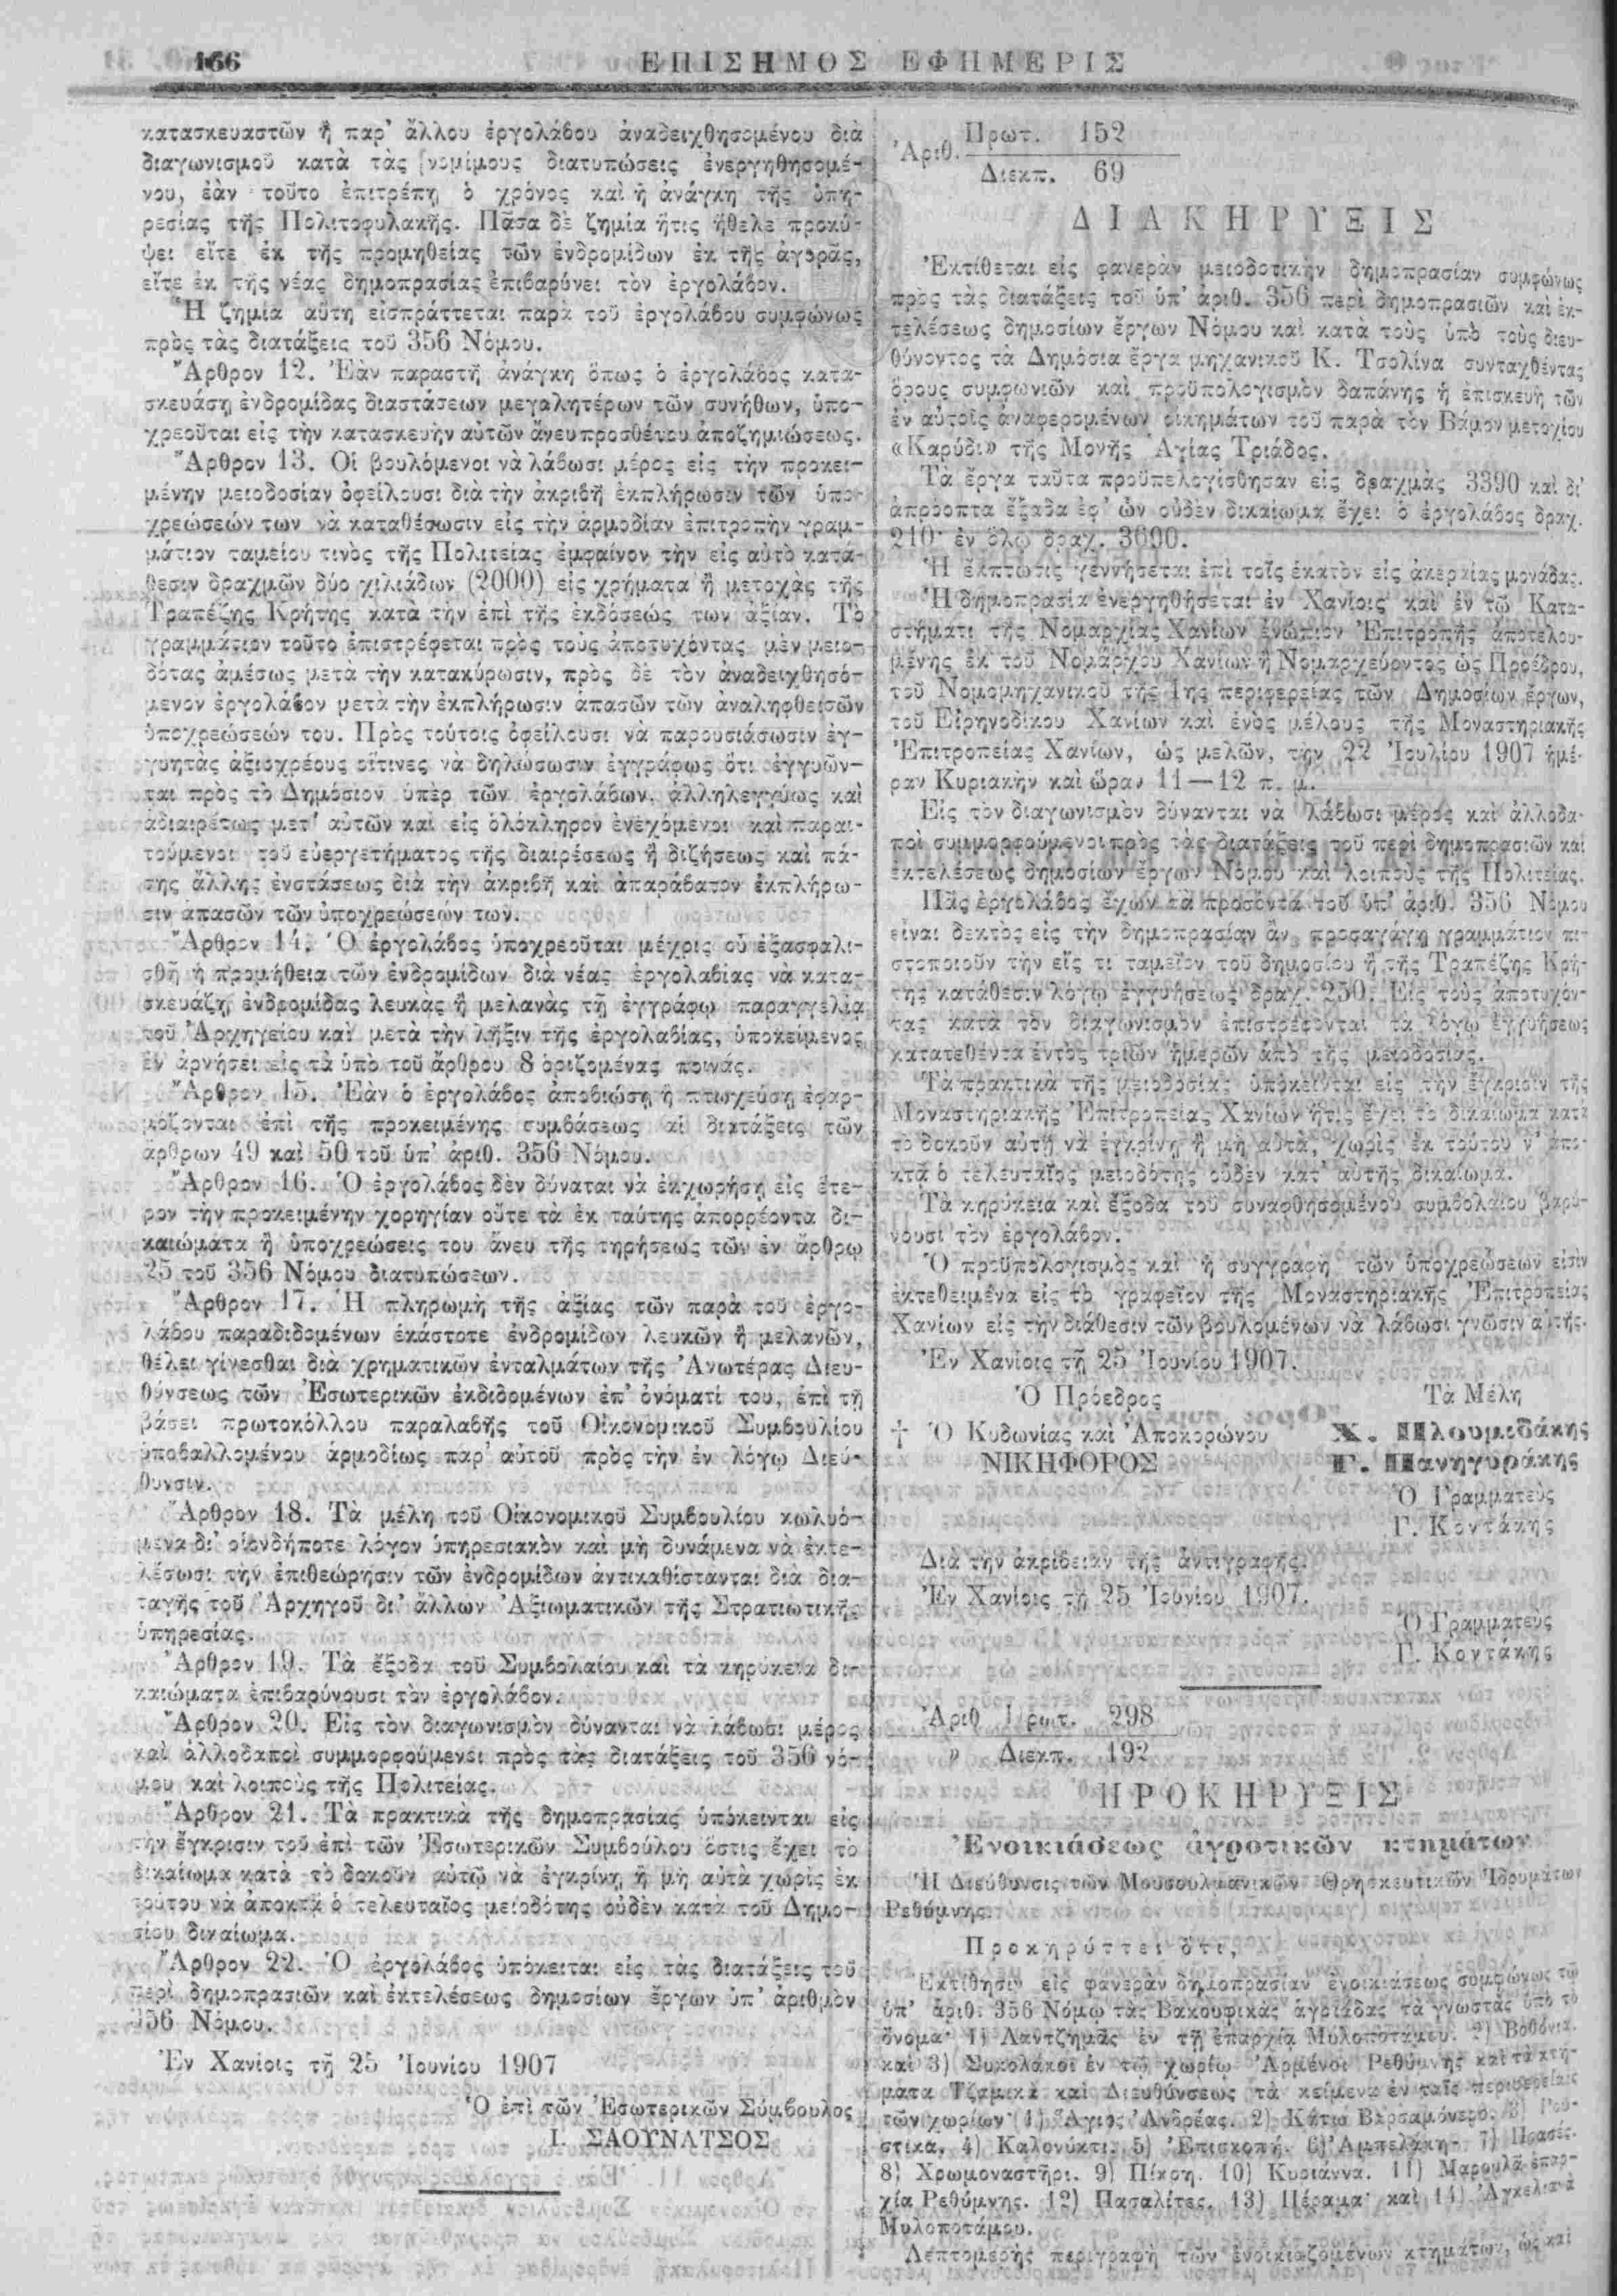 166
ΕΠΙΣΗΜΟΣ ΕΦΗΜΕΡΙΣ
κατασκευαστῶν ἢ παρ’ ἄλλου ἐργολάβου ἀναδειχθησομένου διὰ
διαγωνισμοῦ κατὰ τὰς νομίμους διατυπώσεις ἐνεργηθησομέ-
νου, ἐὰν τοῦτο ἐπιτρέπῃ ὁ χρόνος καὶ ἡ ἀνάγκη τῆς ὑπη-
ρεσίας τῆς Πολιτοφυλακῆς. Πᾶσα δὲ ζημία ἥτις ἤθελε προκύ-
ψει εἴτε ἐκ τῆς προμηθείας τῶν ἐνδρομίδων ἐκ τῆς ἀγορᾶς,
εἴτε ἐκ τῆς νέας δημοπρασίας ἐπιβαρύνει τὸν ἐργολάβον.
Ἡ ζημία αὕτη εἰσπράττεται παρὰ τοῦ ἐργολάβου συμφώνως
πρὸς τὰς διατάξεις τοῦ 356 Νόμου.
Ἄρθρον 12. Ἐὰν παραστῇ ἀνάγκη ὅπως ὁ ἐργολάβος κατα-
σκευάσῃ ἐνδρομίδας διαστάσεων μεγαλητέρων τῶν συνήθων, ὑπο-
χρεοῦται εἰς τὴν κατασκευὴν αὐτῶν ἄνευ προσθέτου ἀποζημιώσεως.
Ἄρθρον 13. Οἱ βουλόμενοι νὰ λάβωσι μέρος εἰς τὴν προκει-
μένην μειοδοσίαν ὀφείλουσι διὰ τὴν ἀκριβῆ ἐκπλήρωσιν τῶν ὑπο-
χρεώσεών των νὰ καταθέσωσιν εἰς τὴν ἁρμοδίαν ἐπιτροπὴν γραμ-
μάτιον ταμείου τινὸς τῆς Πολιτείας ἐμφαίνον τὴν εἰς αὐτὸ κατά-
θεσιν δραχμῶν δύο χιλιάδων (2000) εἰς χρήματα ἢ μετοχὰς τῆς
Τραπέζης Κρήτης κατὰ τὴν ἐπὶ τῆς ἐκδόσεώς των ἀξίαν. Τὸ
γραμμάτιον τοῦτο ἐπιστρέφεται πρὸς τοὺς ἀποτυχόντας μὲν μειο-
δότας ἀμέσως μετὰ τὴν κατακύρωσιν, πρὸς δὲ τὸν ἀναδειχθησό-
μενον ἐργολάβον μετὰ τὴν ἐκπλήρωσιν ἁπασῶν τῶν ἀναληφθεισῶν
ὑποχρεώσεών του. Πρὸς τούτοις ὀφείλουσι νὰ παρουσιάσωσιν ἐγ-
γυητὰς ἀξιοχρέους οἵτινες νὰ δηλώσωσιν ἐγγράφως ὅτι ἐγγυῶν-
ται πρὸς τὸ Δημόσιον ὑπὲρ τῶν ἐργολάβων, ἀλληλεγγύως καὶ
ἀδιαιρέτως μετ’ αὐτῶν καὶ εἰς ὁλόκληρον ἐνεχόμενοι καὶ παραι-
τούμενοι τοῦ εὐεργετήματος τῆς διαιρέσεως ἢ διζήσεως καὶ πά-
σης ἄλλης ἐνστάσεως διὰ τὴν ἀκριβῆ καὶ ἀπαράβατον ἐκπλήρω-
σιν ἁπασῶν τῶν ὑποχρεώσεών των.
Ἄρθρον 14. Ὁ ἐργολάβος ὑποχρεοῦται μέχρις οὗ ἐξασφαλι-
σθῇ ἡ προμήθεια τῶν ἐνδρομίδων διὰ νέας ἐργολαβίας νὰ κατα-
σκευάζῃ ἐνδρομίδας λευκὰς ἢ μελανὰς τῇ ἐγγράφῳ παραγγελίᾳ
τοῦ Ἀρχηγείου καὶ μετὰ τὴν λῆξιν τῆς ἐργολαβίας, ὑποκείμενος
ἐν ἀρνήσει εἰς τὰ ὑπὸ τοῦ ἄρθρου 8 ὁριζομένας ποινάς.
Ἄρθρον 15. Ἐὰν ὁ ἐργολάβος ἀποβιώσῃ ἢ πτωχεύσῃ ἐφαρ-
μόζονται ἐπὶ τῆς προκειμένης συμβάσεως αἱ διατάξεις τῶν
ἄρθρων 49 καὶ 50 τοῦ ὑπ’ ἀριθ. 356 Νόμου.
Ἄρθρον 16. Ὁ ἐργολάβος δὲν δύναται νὰ ἐκχωρήσῃ εἰς ἕτε-
ρον τὴν προκειμένην χορηγίαν οὔτε τὰ ἐκ ταύτης ἀπορρέοντα δι-
καιώματα ἢ ὑποχρεώσεις του ἄνευ τῆς τηρήσεως τῶν ἐν ἄρθρῳ
25 τοῦ 356 Νόμου διατυπώσεων.
Ἄρθρον 17. Ἡ πληρωμὴ τῆς ἀξίας τῶν παρὰ τοῦ ἐργο-
λάβου παραδιδομένων ἑκάστοτε ἐνδρομίδων λευκῶν ἢ μελανῶν,
θέλει γίνεσθαι διὰ χρηματικῶν ἐνταλμάτων τῆς Ἀνωτέρας Διευ-
θύνσεως τῶν Ἐσωτερικῶν ἐκδιδομένων ἐπ’ ὀνόματί του, ἐπὶ τῇ
βάσει πρωτοκόλλου παραλαβῆς τοῦ Οἰκονομικοῦ Συμβουλίου
ὑποβαλλομένου ἁρμοδίως παρ’ αὐτοῦ πρὸς τὴν ἐν λόγῳ Διεύ-
θυνσιν.
Ἄρθρον 18. Τὰ μέλη τοῦ Οἰκονομικοῦ Συμβουλίου κωλυό-
μενα δι’ οἱονδήποτε λόγον ὑπηρεσιακὸν καὶ μὴ δυνάμενα νὰ ἐκτε-
λέσωσι τὴν ἐπιθεώρησιν τῶν ἐνδρομίδων ἀντικαθίστανται διὰ δια-
ταγῆς τοῦ Ἀρχηγοῦ δι’ ἄλλων Ἀξιωματικῶν τῆς Στρατιωτικῆς
ὑπηρεσίας.
Ἄρθρον 19. Τὰ ἔξοδα τοῦ Συμβολαίου καὶ τὰ κηρύκεια δι-
καιώματα ἐπιβαρύνουσι τὸν ἐργολάβον.
Ἄρθρον 20. Εἰς τὸν διαγωνισμὸν δύνανται νὰ λάβωσι μέρος
καὶ ἀλλοδαποὶ συμμορφούμενοι πρὸς τὰς διατάξεις τοῦ 356 νό-
μου καὶ λοιποὺς τῆς Πολιτείας.
Ἄρθρον 21. Τὰ πρακτικὰ τῆς δημοπρασίας ὑπόκεινται εἰς
τὴν ἔγκρισιν τοῦ ἐπὶ τῶν Ἐσωτερικῶν Συμβούλου ὅστις ἔχει τὸ
δικαίωμα κατὰ τὸ δοκοῦν αὐτῷ νὰ ἐγκρίνῃ ἢ μὴ αὐτὰ χωρὶς ἐκ
τούτου νὰ ἀποκτᾷ ὁ τελευταῖος μειοδότης οὐδὲν κατὰ τοῦ Δημο-
σίου δικαίωμα.
Ἄρθρον 22. Ὁ ἐργολάβος ὑπόκειται εἰς τὰς διατάξεις τοῦ
περὶ δημοπρασιῶν καὶ ἐκτελέσεως δημοσίων ἔργων ὑπ’ ἀριθμὸν
356 Νόμου.
Ἐν Χανίοις τῇ 25 Ἰουνίου 1907
Ὁ ἐπὶ τῶν Ἐσωτερικῶν Σύμβουλος
Ι. ΣΑΟΥΝΑΤΣΟΣ
Ἀριθ. Πρωτ. 152
Διεκπ. 69
ΔΙΑΚΗΡΥΞΙΣ
Ἐκτίθεται εἰς φανερὰν μειοδοτικὴν δημοπρασίαν συμφώνως
πρὸς τὰς διατάξεις τοῦ ὑπ’ ἀριθ. 356 περὶ δημοπρασιῶν καὶ ἐκ-
τελέσεως δημοσίων ἔργων Νόμου καὶ κατὰ τοὺς ὑπὸ τοὺς διευ-
θύνοντος τὰ Δημόσια ἔργα μηχανικοῦ Κ. Τσολίνα συνταχθέντας
ὅρους συμφωνιῶν καὶ προϋπολογισμὸν δαπάνης ἡ ἐπισκευὴ τῶν
ἐν αὐτοῖς ἀναφερομένων οἰκημάτων τοῦ παρὰ τὸν Βάμον μετοχίου
«Καρύδι» τῆς Μονῆς Ἁγίας Τριάδος.
Τὰ ἔργα ταῦτα προϋπελογίσθησαν εἰς δραχμὰς 3390 καὶ δι’
ἀπρόοπτα ἔξοδα ἐφ’ ὧν οὐδὲν δικαίωμα ἔχει ὁ ἐργολάβος δραχ.
210· ἐν ὅλῳ δραχ. 3600.
Ἡ ἔκπτωσις γεννήσεται ἐπὶ τοῖς ἑκατὸν εἰς ἀκεραίας μονάδας.
Ἡ δημοπρασία ἐνεργηθήσεται ἐν Χανίοις καὶ ἐν τῷ Κατα-
στήματι τῆς Νομαρχίας Χανίων ἐνώπιον Ἐπιτροπῆς ἀποτελου-
μένης ἐκ τοῦ Νομάρχου Χανίων ἢ Νομαρχεύοντος ὡς Προέδρου,
τοῦ Νομομηχανικοῦ τῆς 1ης περιφερείας τῶν Δημοσίων ἔργων,
τοῦ Εἰρηνοδίκου Χανίων καὶ ἑνὸς μέλους τῆς Μοναστηριακῆς
Ἐπιτροπείας Χανίων, ὡς μελῶν, τὴν 22 Ἰουλίου 1907 ἡμέ-
ραν Κυριακὴν καὶ ὥραν 11—12 π. μ.
Εἰς τὸν διαγωνισμὸν δύνανται νὰ λάβωσι μέρος καὶ ἀλλοδα-
ποὶ συμμορφούμενοι πρὸς τὰς διατάξεις τοῦ περὶ δημοπρασιῶν καὶ
ἐκτελέσεως δημοσίων ἔργων Νόμου καὶ λοιποὺς τῆς Πολιτείας.
Πᾶς ἐργολάβος ἔχων τὰ προσόντα τοῦ ὑπ’ ἀριθ. 356 Νόμου
εἶναι δεκτὸς εἰς τὴν δημοπρασίαν ἂν προσαγάγῃ γραμμάτιον πι-
στοποιοῦν τὴν εἴς τι ταμεῖον τοῦ δημοσίου ἢ τῆς Τραπέζης Κρή-
της κατάθεσιν λόγῳ ἐγγυήσεως δραχ. 250. Εἰς τοὺς ἀποτυχόν-
τας κατὰ τὸν διαγωνισμὸν ἐπιστρέφονται τὰ λόγῳ ἐγγυήσεως
κατατεθέντα ἐντὸς τριῶν ἡμερῶν ἀπὸ τῆς μειοδοσίας.
Τὰ πρακτικὰ τῆς μειοδοσίας ὑπόκεινται εἰς τὴν ἔγκρισιν τῆς
Μοναστηριακῆς Ἐπιτροπείας Χανίων ἥτις ἔχει τὸ δικαίωμα κατὰ
τὸ δοκοῦν αὐτῇ νὰ ἐγκρίνῃ ἢ μὴ αὐτά, χωρὶς ἐκ τούτου ν’ ἀπο-
κτᾷ ὁ τελευταῖος μειοδότης οὐδὲν κατ’ αὐτῆς δικαίωμα.
Τὰ κηρύκεια καὶ ἔξοδα τοῦ συναφθησομένου συμβολαίου βαρύ-
νουσι τὸν ἐργολάβον.
Ὁ προϋπολογισμὸς καὶ ἡ συγγραφὴ τῶν ὑποχρεώσεων εἰσὶν
ἐκτεθειμένα εἰς τὸ γραφεῖον τῆς Μοναστηριακῆς Ἐπιτροπείας
Χανίων εἰς τὴν διάθεσιν τῶν βουλομένων νὰ λάβωσι γνῶσιν αὐτῆς.
Ἐν Χανίοις τῇ 25 Ἰουνίου 1907.
Ὁ Πρόεδρος
† Ὁ Κυδωνίας καὶ Ἀποκορώνου
ΝΙΚΗΦΟΡΟΣ
Τὰ Μέλη
Χ. Πλουμιδάκης
Γ. Πανηγυράκης
Ὁ Γραμματεὺς
Γ. Κοντάκης
Διὰ τὴν ἀκρίβειαν τῆς ἀντιγραφῆς.
Ἐν Χανίοις τῇ 25 Ἰουνίου 1907.
Ὁ Γραμματεὺς
Γ. Κοντάκης
Ἀριθ Πρωτ. 298
» Διεκπ. 192
ΠΡΟΚΗΡΥΞΙΣ
Ἐνοικιάσεως ἀγροτικῶν κτημάτων
Ἡ Διεύθυνσις τῶν Μουσουλμανικῶν Θρησκευτικῶν Ἱδρυμάτων
Ρεθύμνης.
Προκηρύττει ὅτι,
Ἐκτίθησιν εἰς φανερὰν δημοπρασίαν ἐνοικιάσεως συμφώνως τῷ
ὑπ’ ἀριθ. 356 Νόμῳ τὰς Βακουφικὰς ἀγριάδας τὰ γνωστὰς ὑπὸ τὸ
ὄνομα· 1) Λαντζημᾶς ἐν τῇ ἐπαρχίᾳ Μυλοποτάμου. 2) Βοθόνια.
καὶ 3) Συκολάκοι ἐν τῷ χωρίῳ Ἀρμένοι Ρεθύμνης καὶ τὰ κτή-
ματα Τζαμικὰ καὶ Διευθύνσεως τὰ κείμενα ἐν ταῖς περιφερείαις
τῶν χωρίων· 1) Ἅγιος Ἀνδρέας. 2) Κάτω Βαρσαμόνερο. 3) Ρού-
στικα. 4) Καλονύκτι. 5) Ἐπισκοπή. 6) Ἀμπελάκη 7) Πρασές.
8) Χρωμοναστῆρι. 9) Πίκρη. 10) Κυριάννα. 11) Μαρουλᾶ ἐπαρ-
χία Ρεθύμνης. 12) Πασαλίτες. 13) Πέραμα· καὶ 14) Ἀγκελιανὰ
Μυλοποτάμου.
Λεπτομερὴς περιγραφὴ τῶν ἐνοικιαζομένων κτημάτων, ὡς καὶ